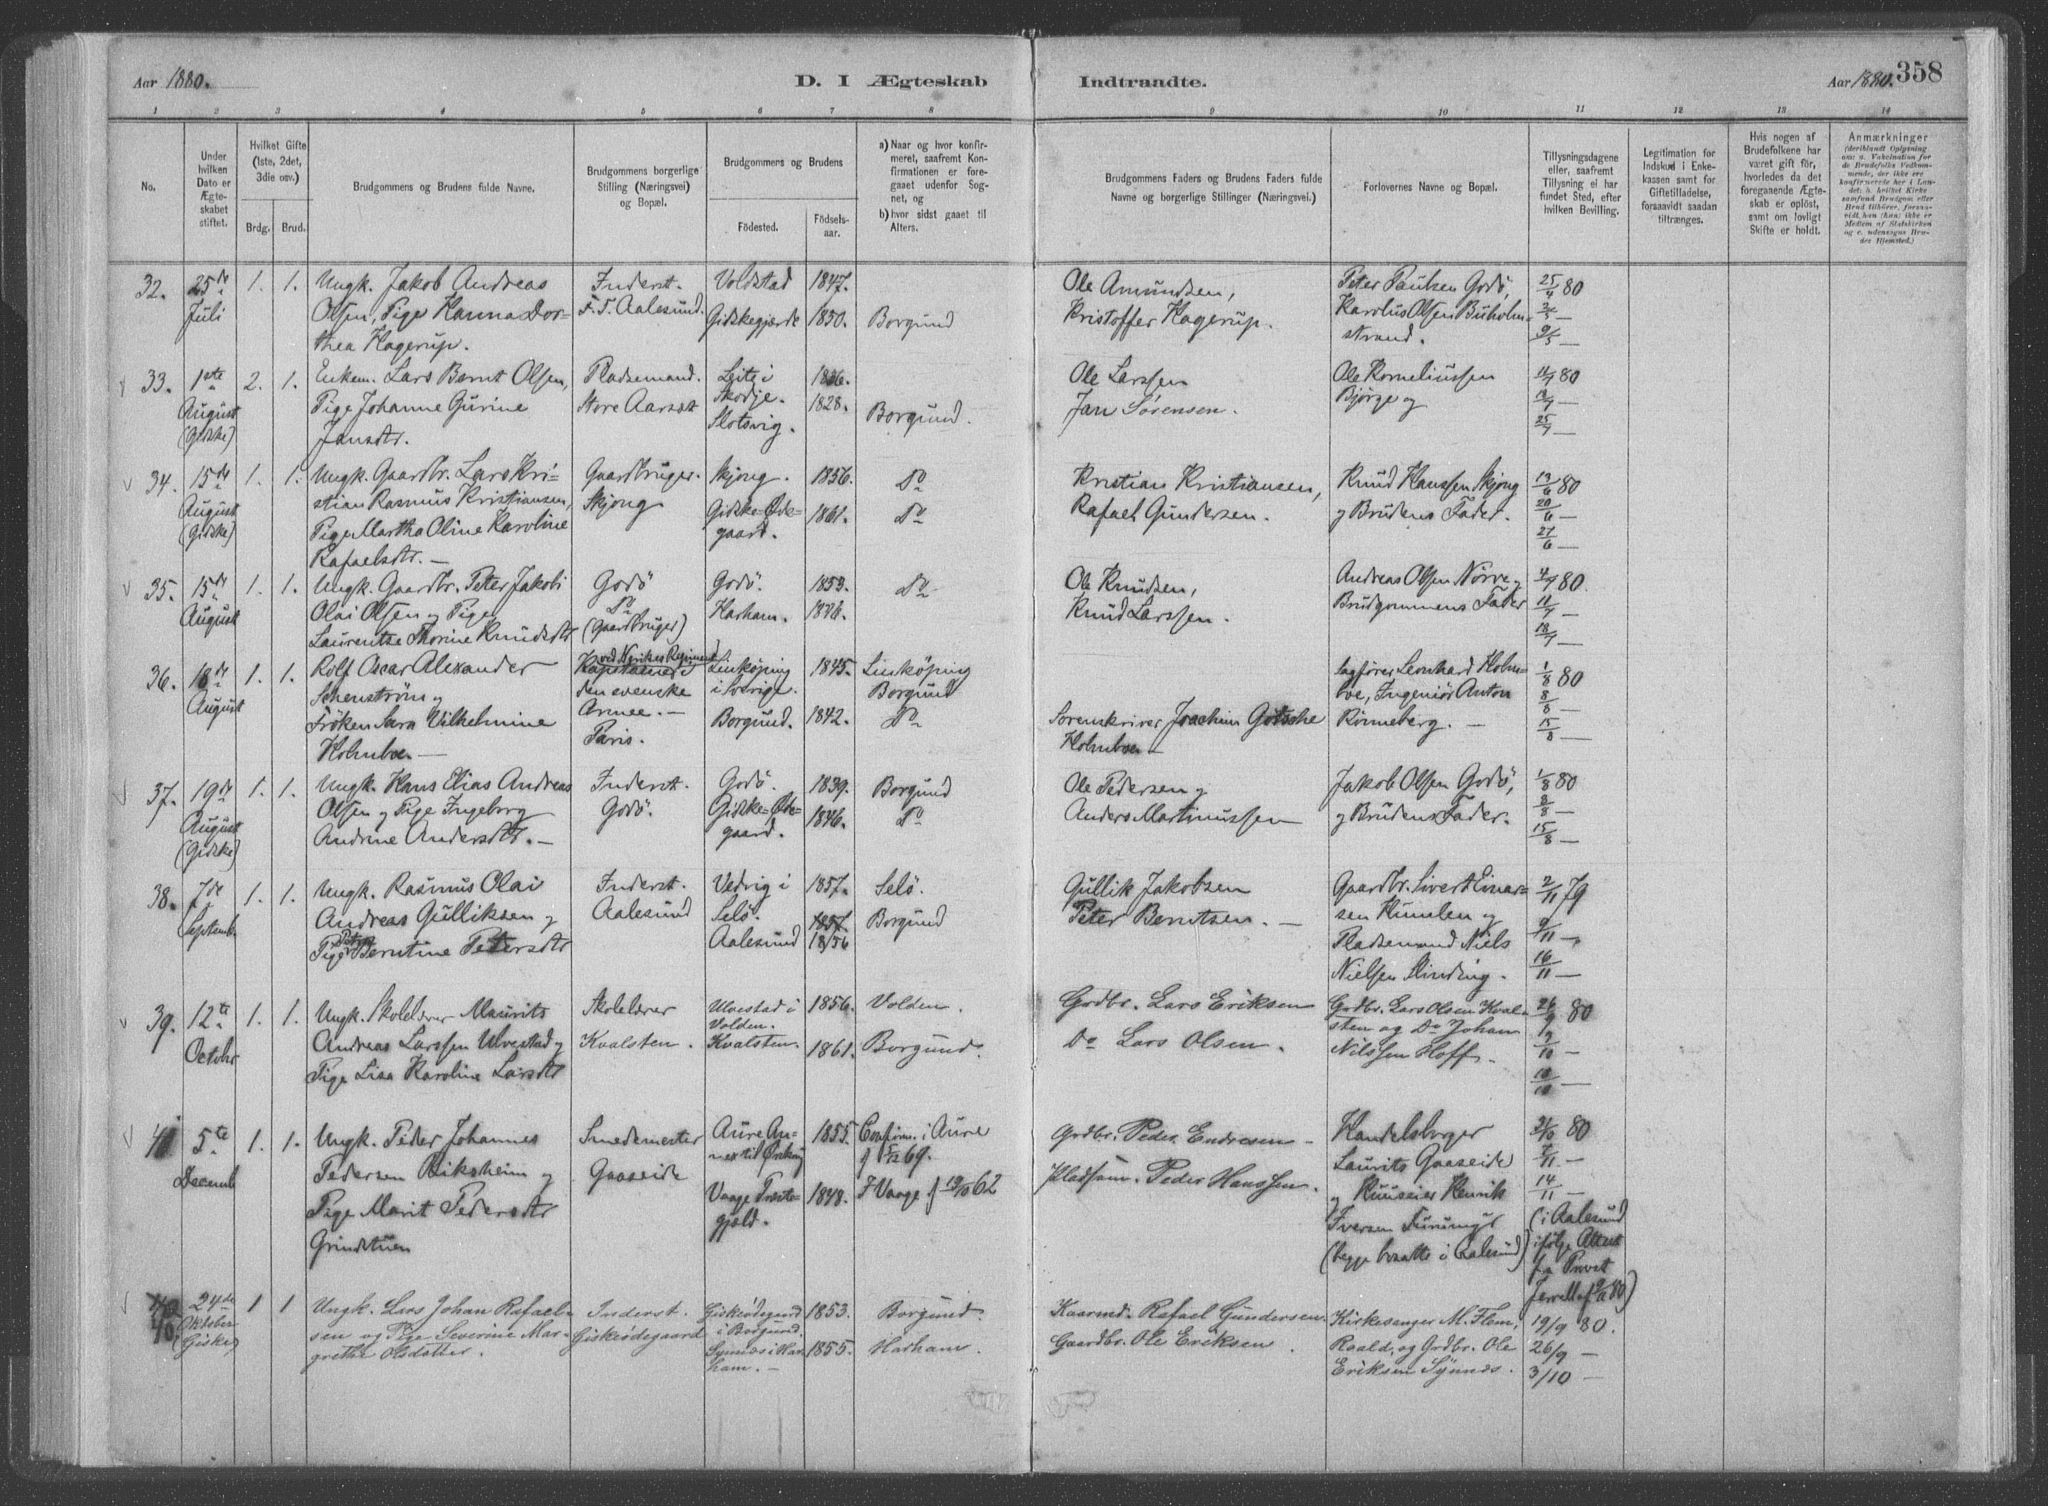 Aar 1880.
D. I Ægteskab Indtraadte.
Aar 1880.
358
1 2 3 4 5 6 7 8 9 10 11 12 13 14
No.
Under hvilken Dato er Ægteskabet stiftet.
Hvilket Gifte (1ste, 2det, 3die osv.)
Brdg. Brud.
Brudgommens og Brudens fulde Navne.
Brudgommens borgerlige Stilling (Næringsvei) og Bopæl.
Brudgommens og Brudens
Födested.
Födselsaar.
a) Naar og hvor konfirmeret, saafremt Konfirmationen er foregaaet udenfor Sognet, og
b) hvor sidst gaaet til Alters.
Brudgommens Faders og Brudens Faders fulde Navne og borgerlige Stillinger (Næringsvei.)
Forlovernes Navne og Bopæl.
Tillysningsdagene eller, saafremt Tillysning ei har fundet Sted, efter hvilken Bevilling.
Legitimation for Indskud i Enkekassen samt for Giftetilladelse, forsaavidt saadan tiltrænges.
Hvis nogen af Brudefolkene har været gift før, hvorledes da det foregaaende Ægteskab er opløst, samt om lovligt Skifte er holdt.
Anmærkninger
(deriblandt Oplysning om: a. Vakcination for de Brudefolks Vedkommende, der ikke ere konfirmerede her i Landet; b. hvilket Kirkesamfund Brudgom eller Brud tilhører, forsaavidt han (hun) ikke er Medlem af Statskirken og c. udensogns Brudes Hjemsted.)
32. 25de Juli 1. 1.
Ungk. Jakob Andreas
Olsen, Pige Hanna Dor-
thea Hagerup.
Inderst.
F. T. Aalesund.
Voldstad 1847.
Gidskegjerde 1850. Borgund
Ole Amundsen,
Kristoffer Hagerup.
Peter Paulsen Godö,
Karolus Olsen Buholm-
strand.
25/4 80
2/5 —
9/5 —
33. 1ste August (Gidske) 2. 1.
Enkem. Lars Bernt Olsen,
Pige Johanne Gurine
Jansdtr.
Pladsemand.
Store Aarsæt
Leite i
Skodje. 1836.
Slotsvig. 1828. Borgund.
Ole Larssen
Jan Sørensen.
Ole Korneliussen
Bjørge og
11/7 80
18/7 —
25/7 —
34. 15de August (Gidske) 1. 1.
Ungk. Gaardbr. Lars Kri-
stian Rasmus Kristiansen,
Pige Martha Oline Karoline
Rafaelsdtr. —
Gaardbruger.
Skjong
Skjong. 1856. Do
Gidske-Øde-
gaard. 1861. Do
Kristian Kristiansen,
Rafael Gundersen.
Knud Hanssen Skjong
og Brudens Fader.
13/6 80
20/6 —
27/6 —
35. 15de August 1. 1.
Ungk. Gaardbr. Peter Jakob
Olai Olsen og Pige
Laurentse Thorine Knudsdtr
Godö
Do
(Gaardbruger)
Godö. 1853. Do
Harham.
Ole Knudsen,
Knud Larssen.
Andreas Olsen Nörve og
Brudgommens Fader
4/7 80.
11/7 —
18/7 —
36. 18de August 1. 1.
Rolf Oscar Alexander
Schenström og
Fröken Sara Vilhelmine
Holmboe —
ved Nerikes Regiment
Kaptaine i
den svenske
Armee. —
Paris.
Linköping
i Sverige. 1845. Linköping
Borgund
Borgund. 1842. Do
Sorenskriver Joachim Gotsche
Holmboe —
Sagförer Leonhard Holm-
boe, Ingeniör Anton
Rönneberg. —
1/8 80
8/8 —
15/8 —
37. 19de August (Gidske) 1. 1.
Ungk. Hans Elias Andreas
Olsen og Pige Ingeborg
Andrine Andersdtr. —
Inderst.
Godö.
Godö. 1839. Borgund
Gidske-Øde-
gaard. 1846. Do
Ole Pedersen og
Anders Martinussen
Jakob Olsen Godö,
og Brudens Fader.
1/8 80
8/8 —
15/8 —
38. 7de Septemb. 1. 1.
Ungk. Rasmus Olai
Andreas Gulliksen og
Petra
Pige Berntine Petersdtr
Inderst.
Aalesund
Vedvig i
Selö. 1857. Selö.
Aalesund 1857 18/56 Borgund
Gullik Jakobsen
Peter Berntsen. —
Gaardbr. Sivert Einar-
sen Humlen og
Pladsemand Niels
Nielsen Slinding.
2/11 79
9/11 —
16/11 —
39. 12te Octobr 1. 1.
Ungk. Skolelærer Maurits
Andreas Larssen Ulvestad og
Pige Lisa Karoline Larsdtr
Skolelærer
Kvalsten.
Ulvestad i
Volden. 1856. Volden.
Kvalsten 1861. Borgund.
Grdbr. Lars Eriksen
Do Lars Olsen.
Grdbr. Lars Olsen Kval-
sten og Do Johan
Nilssen Hoff.
26/9 80
10/10 —
41 5te Decemb 1. 1.
Ungk. Peder Johannes
Pedersen Viksheim og
Pige Marit Pedersdtr
Grindstuen
Smedemester
Gaaseide
Aure An-
nex til Ørskog 1855. Confirm. i Aure
Vaage Præste-
gjeld. 1848. I Vaage
Grdbr. Peder Endresen —
Pladsm. Peder Hanssen.
Handelsborger
Laurits Gaaseide
og Henrik
Iversen
(begge bosatte i Aalesund)
31/10 80
7/11 —
14/11 —
(i Aalesund
ifølge Attest
fra Provst
40. 24de Oktober (Giske) 1 1
Ungk. Lars Johan Rafael-
sen og Pige Severine Mar-
grethe Olsdatter.
Inderst.
Giskeødegaard
Giskeødegaard
i Borgund. 1853. Borgund.
Synnæs i Har-
ham. — 1855. Harham.
Kaarmd. Rafael Gundersen.
Gaardbr. Ole Eriksen.
Kirkesanger M. Flem,
Roald, og Grdbr. Ole
Eriksen Synnæs.
19/9 80.
26/9 —
3/10 —